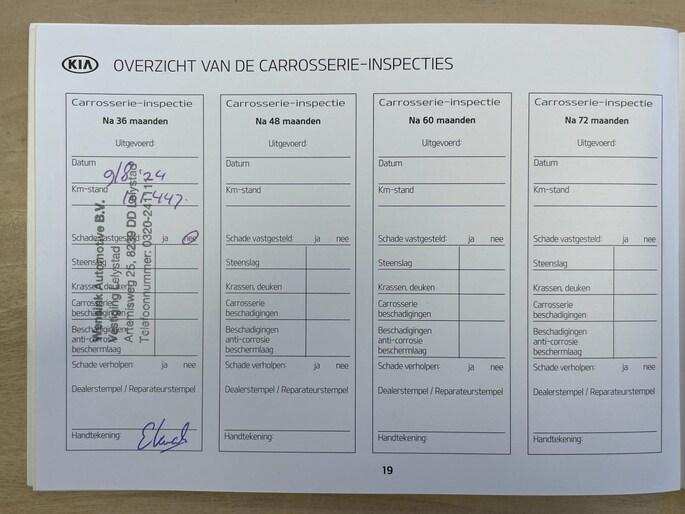 KIA OVERZICHT VAN DE CARROSSERIE-INSPECTIES
Carrosserie-inspectie
Na 36 maanden
Uitgevoerd:
Datum 9/8 '24
Km-stand
Schade vastgesteld: ja nee
Steenslag
Krassen, deuken
Carrosserie
beschadigingen
Beschadigingen
anti-corrosie
beschermlaag
Schade verholpen: ja nee
Dealerstempel / Reparateurstempel
Handtekening:
Wensink Automotive B.V.
Vestiging Lelystad
Artemisweg 25, 8239 DD Lelystad
Telefoonnummer: 0320-241111
Carrosserie-inspectie
Na 48 maanden
Uitgevoerd:
Datum
Km-stand
Schade vastgesteld: ja nee
Steenslag
Krassen, deuken
Carrosserie
beschadigingen
Beschadigingen
anti-corrosie
beschermlaag
Schade verholpen: ja nee
Dealerstempel / Reparateurstempel
Handtekening:
Carrosserie-inspectie
Na 60 maanden
Uitgevoerd:
Datum
Km-stand
Schade vastgesteld: ja nee
Steenslag
Krassen, deuken
Carrosserie
beschadigingen
Beschadigingen
anti-corrosie
beschermlaag
Schade verholpen: ja nee
Dealerstempel / Reparateurstempel
Handtekening:
Carrosserie-inspectie
Na 72 maanden
Uitgevoerd:
Datum
Km-stand
Schade vastgesteld: ja nee
Steenslag
Krassen, deuken
Carrosserie
beschadigingen
Beschadigingen
anti-corrosie
beschermlaag
Schade verholpen: ja nee
Dealerstempel / Reparateurstempel
Handtekening:
19